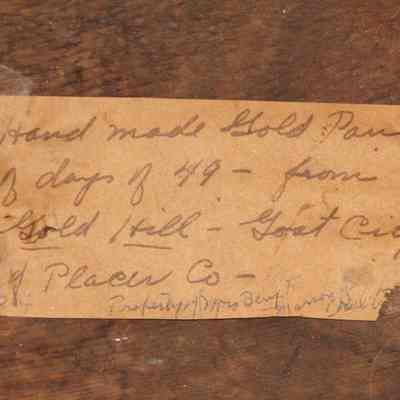 Hand made Gold Pan
of days of 49 - from
Gold Hill - Goat Cit
of Placer Co -
Property of Mrs Benj